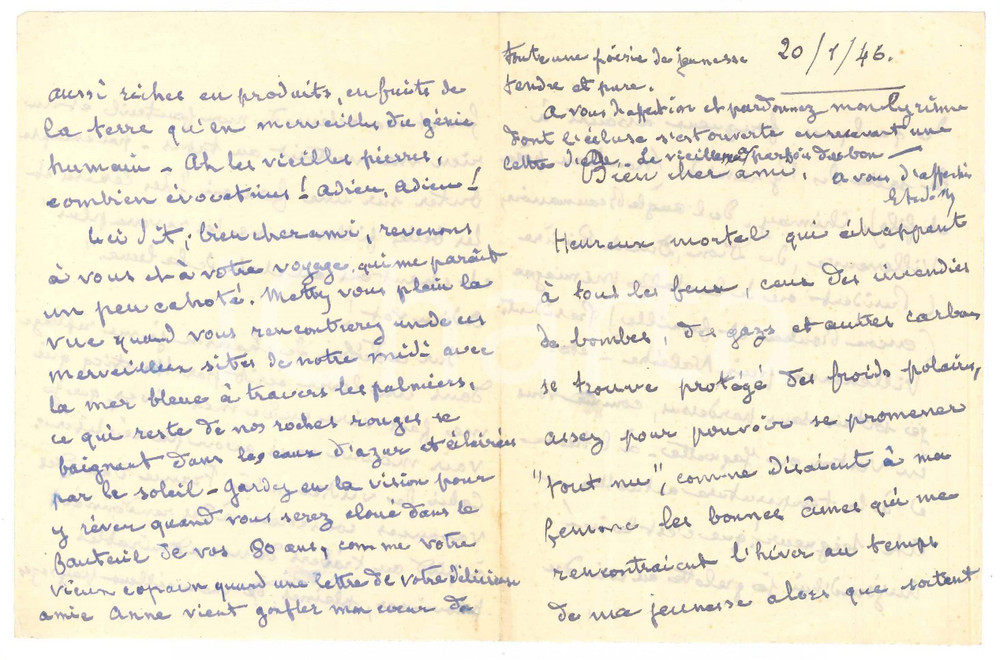 aussi riches en produits, en fuits de
la terre qu'en merveilles du génie
humain - Ah les vieilles pierres,
combien évocatrices ! Adieu, adieu !
Ceci dit ; bien cher ami, revenons
à vous et à votre voyage, qui me paraît
un peu cahoté. Mettez vous plein la
vue quand vous rencontrerez un de ces
merveilleux sites de notre midi avec
la mer bleue à travers les palmiers,
ce qui reste de nos roches rouges se
baignant dans les eaux d'azur et éclairées
par le soleil - Gardez en la vision pour
y rêver quand vous serez cloué dans le
fauteuil de vos 80 ans, comme votre
vieux copain quand une lettre de votre délicieuse
amie Anne vient gonfler mon cœur de
toute une poésie de jeunesse
tendre et pure.
20/1/46.
A vous d'affection et pardonnez mon lyrisme
dont l'écluse s'est ouverte en recevant une
lettre d'elle. Le vieillard parfois du bon -
A vous d'affection
Bien cher ami,
Heureux mortel qui échappant
à tous les feux, ceux des incendies
de bombes, des gazs et autres carbones
se trouve protégé des froids polaires,
assez pour pouvoir se promener
"tout nu", comme disaient à ma
femme les bonnes âmes qui me
rencontraient l'hiver au temps
de ma jeunesse alors que sortent